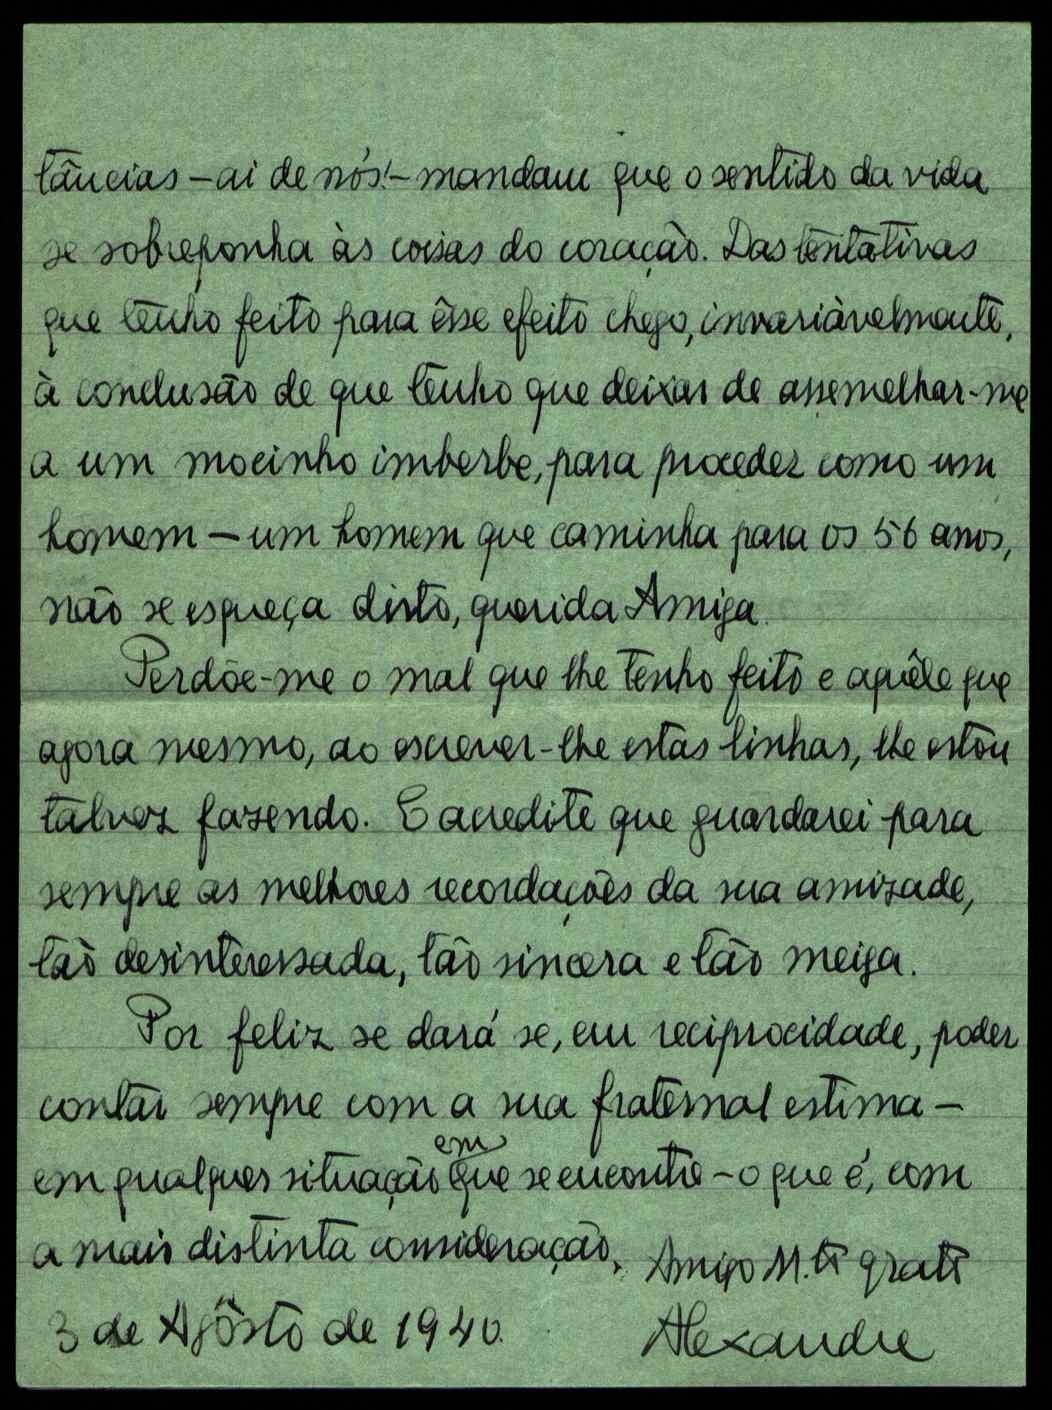 tâncias – ai de nós! – mandam que o sentido da vida
se sobreponha às coisas do coração. Das tentativas
que tenho feito para êsse efeito chego, invariàvelmente,
à conclusão de que tenho que deixar de assemelhar-me
a um mocinho imberbe, para proceder como um
homem – um homem que caminha para os 56 anos,
não se esqueça disto, querida Amiga.
Perdõe-me o mal que lhe tenho feito e aquêle que
agora mesmo, ao escrever-lhe estas linhas, lhe estou
talvez fazendo. E acredite que guardarei para
sempre as melhores recordações da sua amizade,
tão desinteressada, tão sincera e tão meiga.
Por feliz se dará se, em reciprocidade, poder
contar sempre com a sua fraternal estima –
em qualquer situação em que se encontre – o que é, com
a mais distinta consideração,
Amigo M.to grato
3 de Agôsto de 1940.
Alexandre